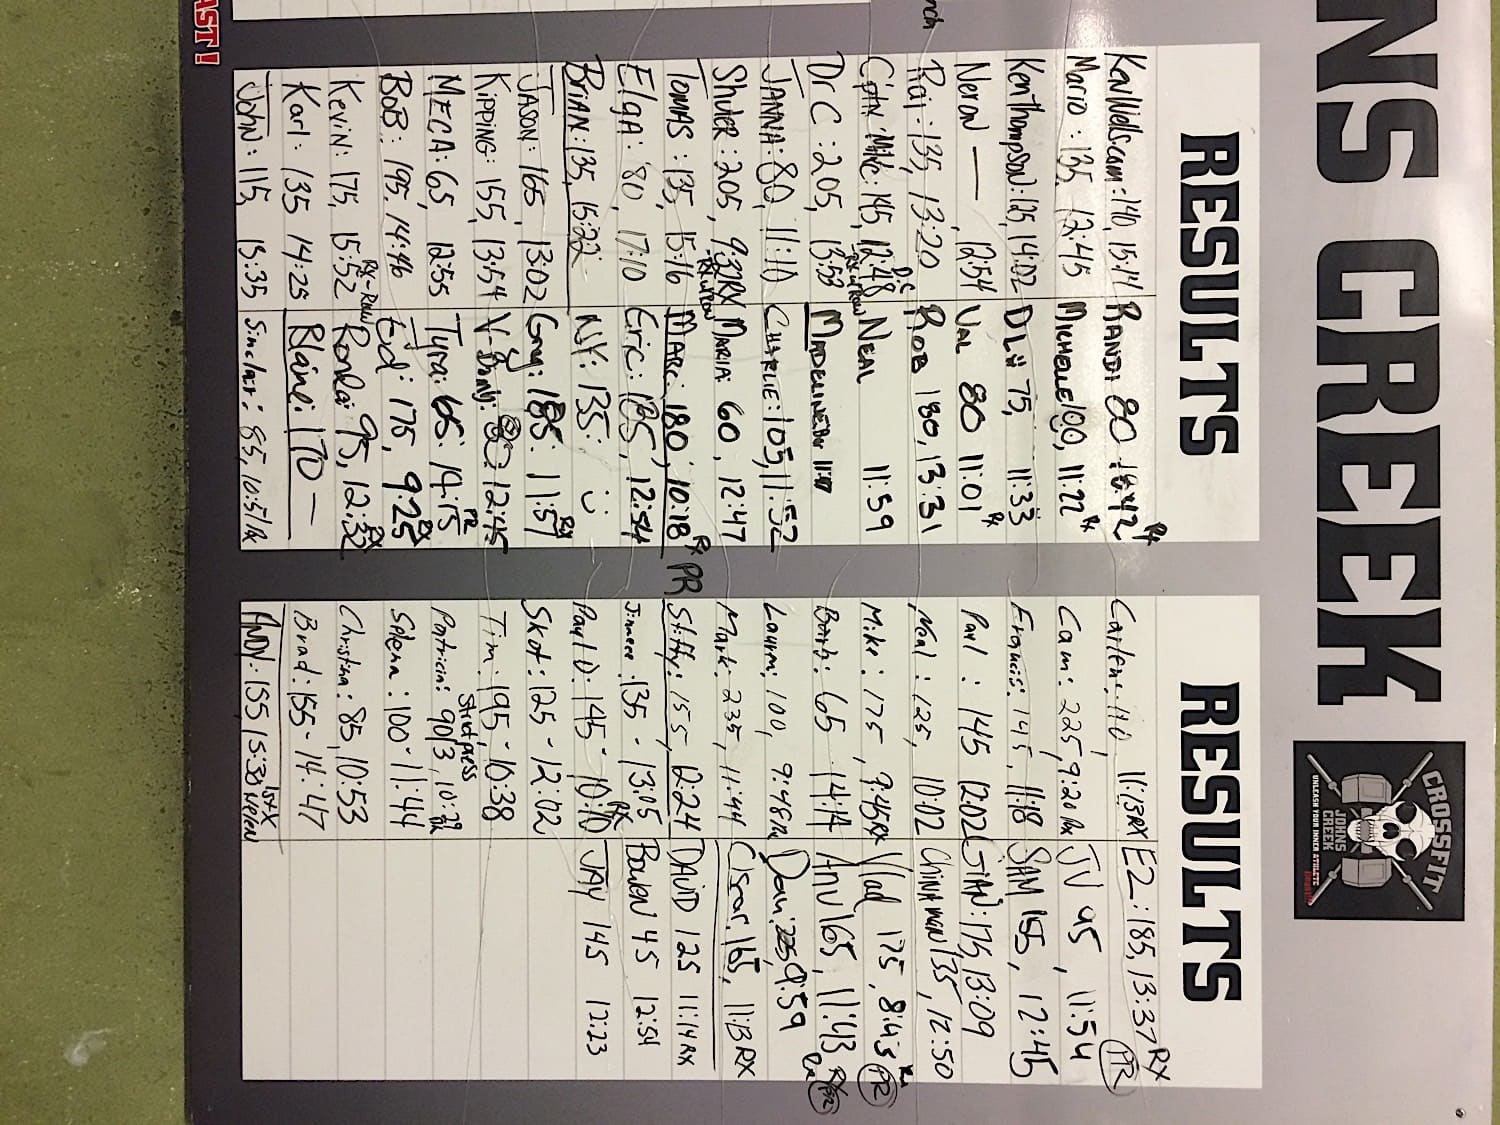 NS CREEK
CROSSFIT
JOHNS
CREEK
UNLEASH YOUR INNER ATHLETE
AST!
RESULTS
Ken Wellscam: 140, 15:14
Mario: 135, 12:45
Ken Thompson: 125, 14:02
Neron — , 12:54
Raj: 135, 13:20
Cptn Mike: 145, 12:48
Dr C: 205, 13:53
JANNA: 80, 11:10
Shuler: 205, 9:37 RX
TOMAS: 135, 15:16
Elga: 80, 17:10
BRIAN: 135, 15:22
JASON: 165, 13:02
KIPPING: 155, 13:54
MECA: 65, 12:55
BOB: 195, 14:46
Kevin: 175, 15:52
Karl: 135 14:25
John: 115, 13:35
RANDI 80 18:42 RX
MICHELLE 100, 11:22 RX
DLH 75, 11:33
VAL 80 11:01 RX
ROB 180, 13:31
NEAL 11:59
MADELINE Bar 11:07
CHARLIE: 105, 11:52
MARIA: 60, 12:47
MARC: 180, 10:18 RX PR
Eric: 135, 12:54
NY: 135: :)
Greg: 185: 11:57 RX
V-Dandy: 80: 12:45
Tyra: 65: 14:15 PR
Ed: 175, 9:25 RX
Ronke: 95, 12:32 RX
Blaine: 170 —
Sinclair: 85, 10:51 Rx
RESULTS
Carlen: 110, 11:13 RX
Cam: 225, 9:20 Rx
Francis: 145, 11:18
Paul: 145 12:02
Neal: 125, 10:02
Mike: 175, 9:45 RX
Barb: 65 14:14
Lauren: 100, 9:48 Rx
Mark: 235, 11:44
Stiffy: 155, 12:24
Jimee: 135 - 13:05
Paul D: 145 - 10:10 RX
Skot: 125 - 12:02
Tim: 195 - 10:38
Strict press
Patricia: 90/3, 10:22
Splenn: 100 - 11:44
Christina: 85, 10:53
Brad: 155 - 14:47
ANDY: 155 15:30
EZ: 185, 13:37 RX PR
JV 95, 11:54
SAM 155, 12:45
GIAN: 175, 13:09
CHINAMAN 135, 12:50
Vlad 175, 8:43 Rx PR
Anu 165, 11:43 RX PR
Dan: 225 9:59
Oscar: 165, 11:13 RX
DAVID 125 11:14 RX
BOWEN 45 12:51
JAY 145 12:23